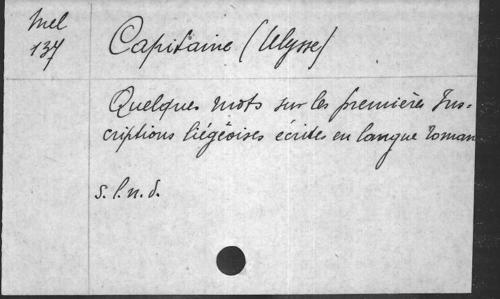 Mel
137
Capitaine (Ulysse)
Quelques mots sur les premières Ins-
criptions liégeoises écrites en langue roman
s.l.n.d.